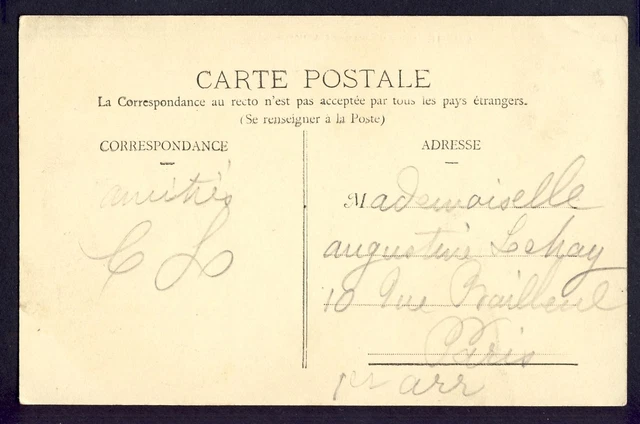 CARTE POSTALE
La Correspondance au recto n'est pas acceptée par tous les pays étrangers.
(Se renseigner à la Poste)
CORRESPONDANCE
amitiés
C L
ADRESSE
Mademoiselle
augustine Lehay
10 Rue Bailleul
Paris
1er arr